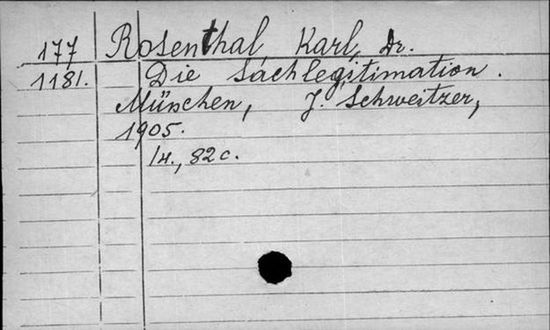 177 Rosenthal Karl, Dr.
1181. Die Sachlegitimation.
München, J. Schweitzer,
1905.
14., 82 c.